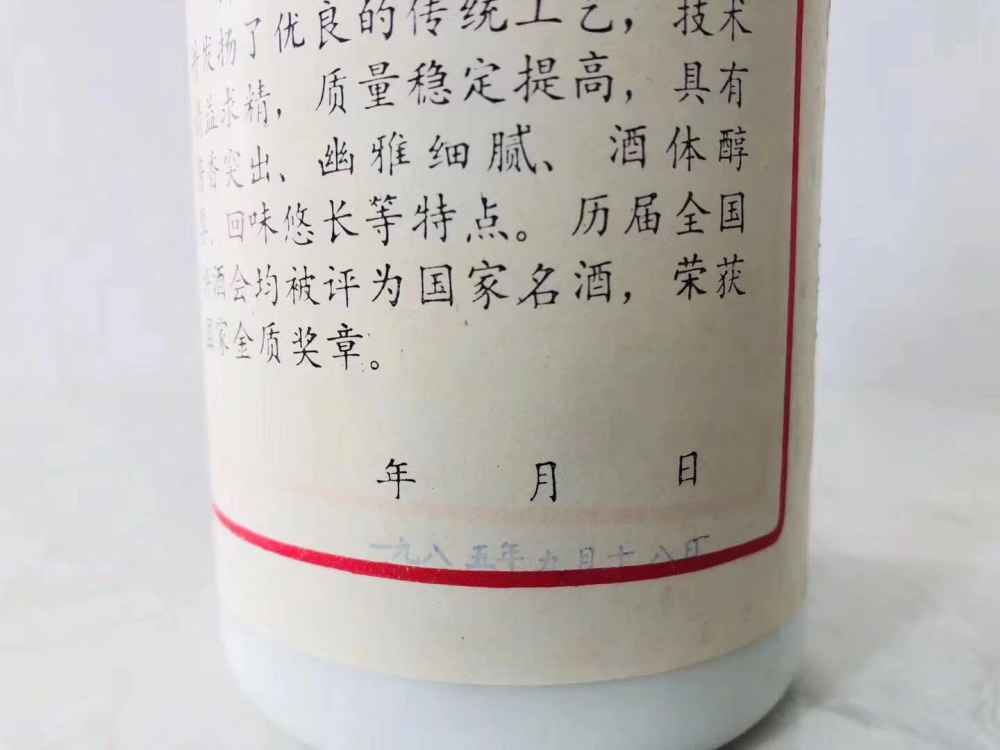 发扬了优良的传统工艺，技术
精益求精，质量稳定提高，具有
酱香突出、幽雅细腻、酒体醇
厚、回味悠长等特点。历届全国
评酒会均被评为国家名酒，荣获
国家金质奖章。
年 月 日
一九八五年九月十八日